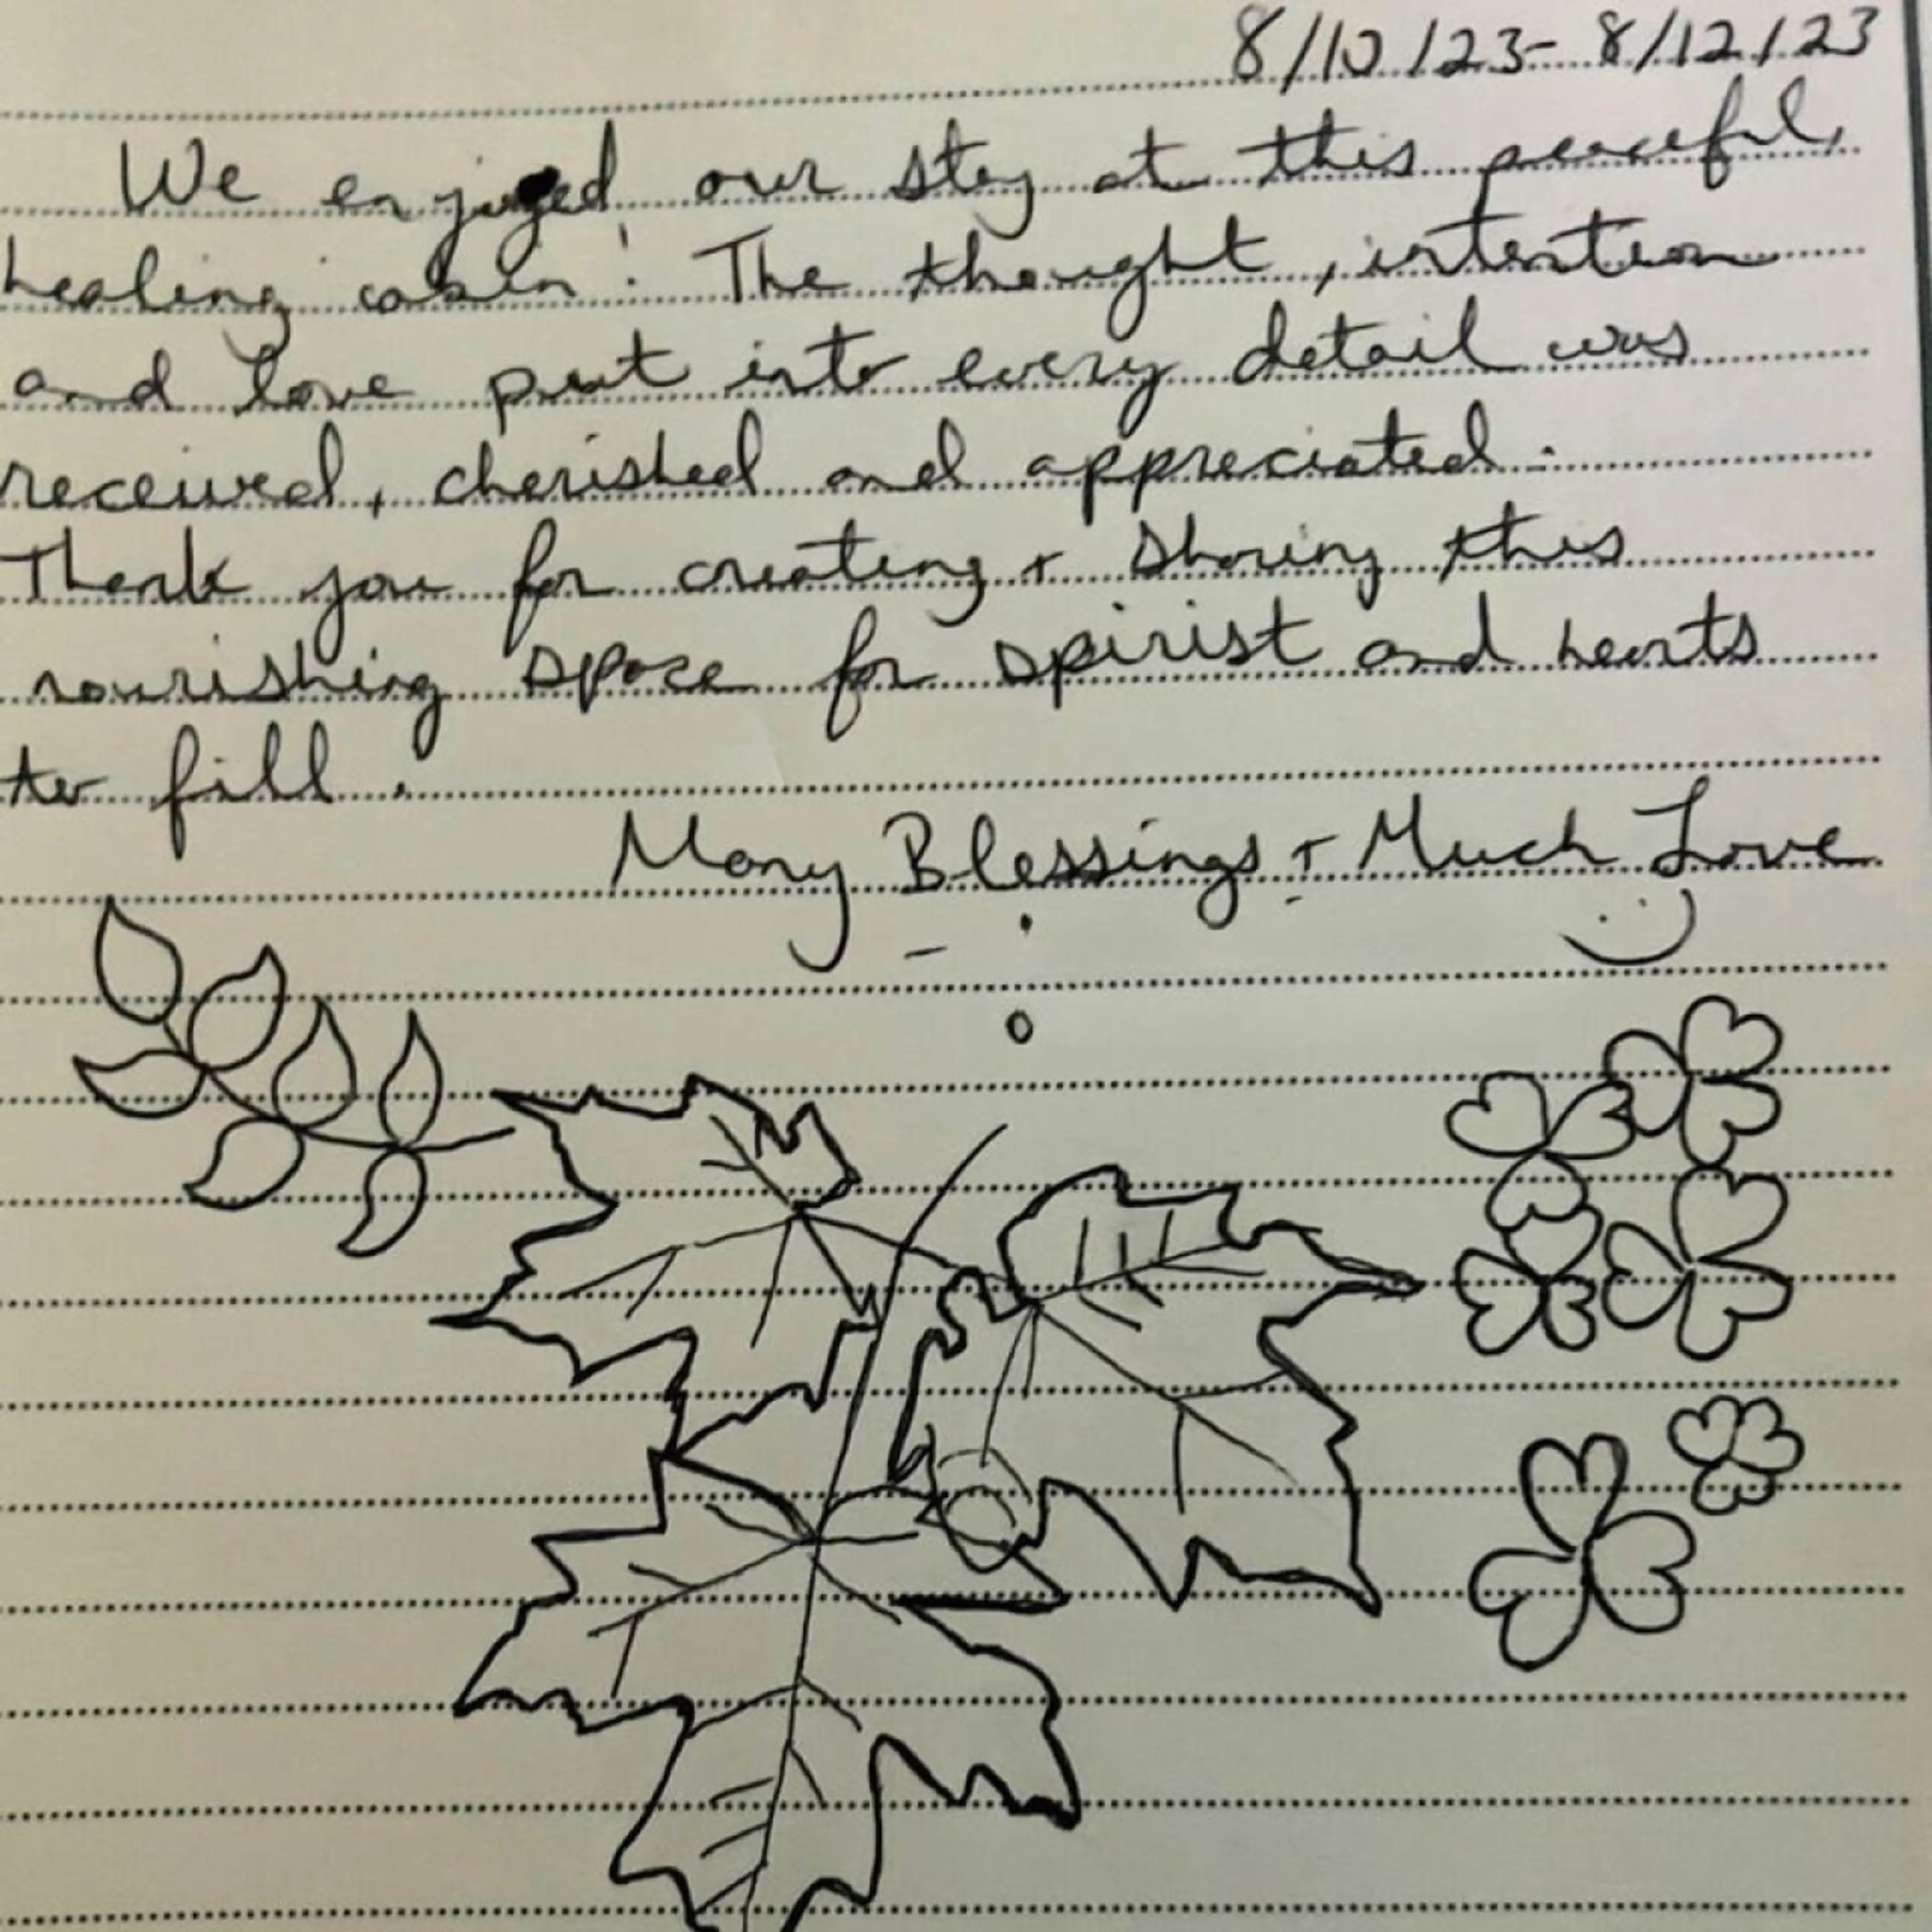 8/10/23-8/12/23
We enjoyed our stay at this peaceful,
healing cabin! The thought, intention
and love put into every detail was
received, cherished and appreciated.
Thank you for creating + sharing this
nourishing space for spirist and hearts
to fill.
Many Blessings + Much Love